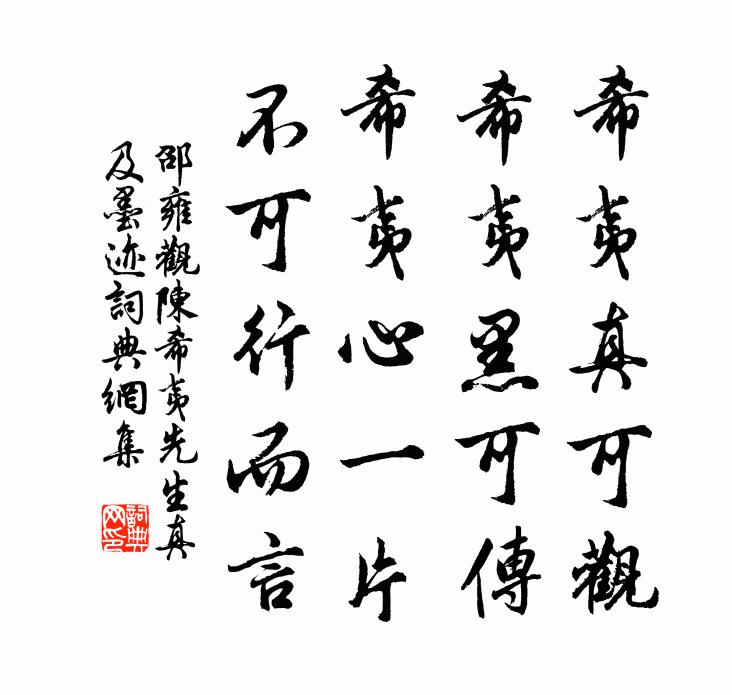 希夷真可觀
希夷黑可傳
希夷心一片
不可行而言
邵雍觀陳希夷先生真
及墨迹詞典網集
詞典网印